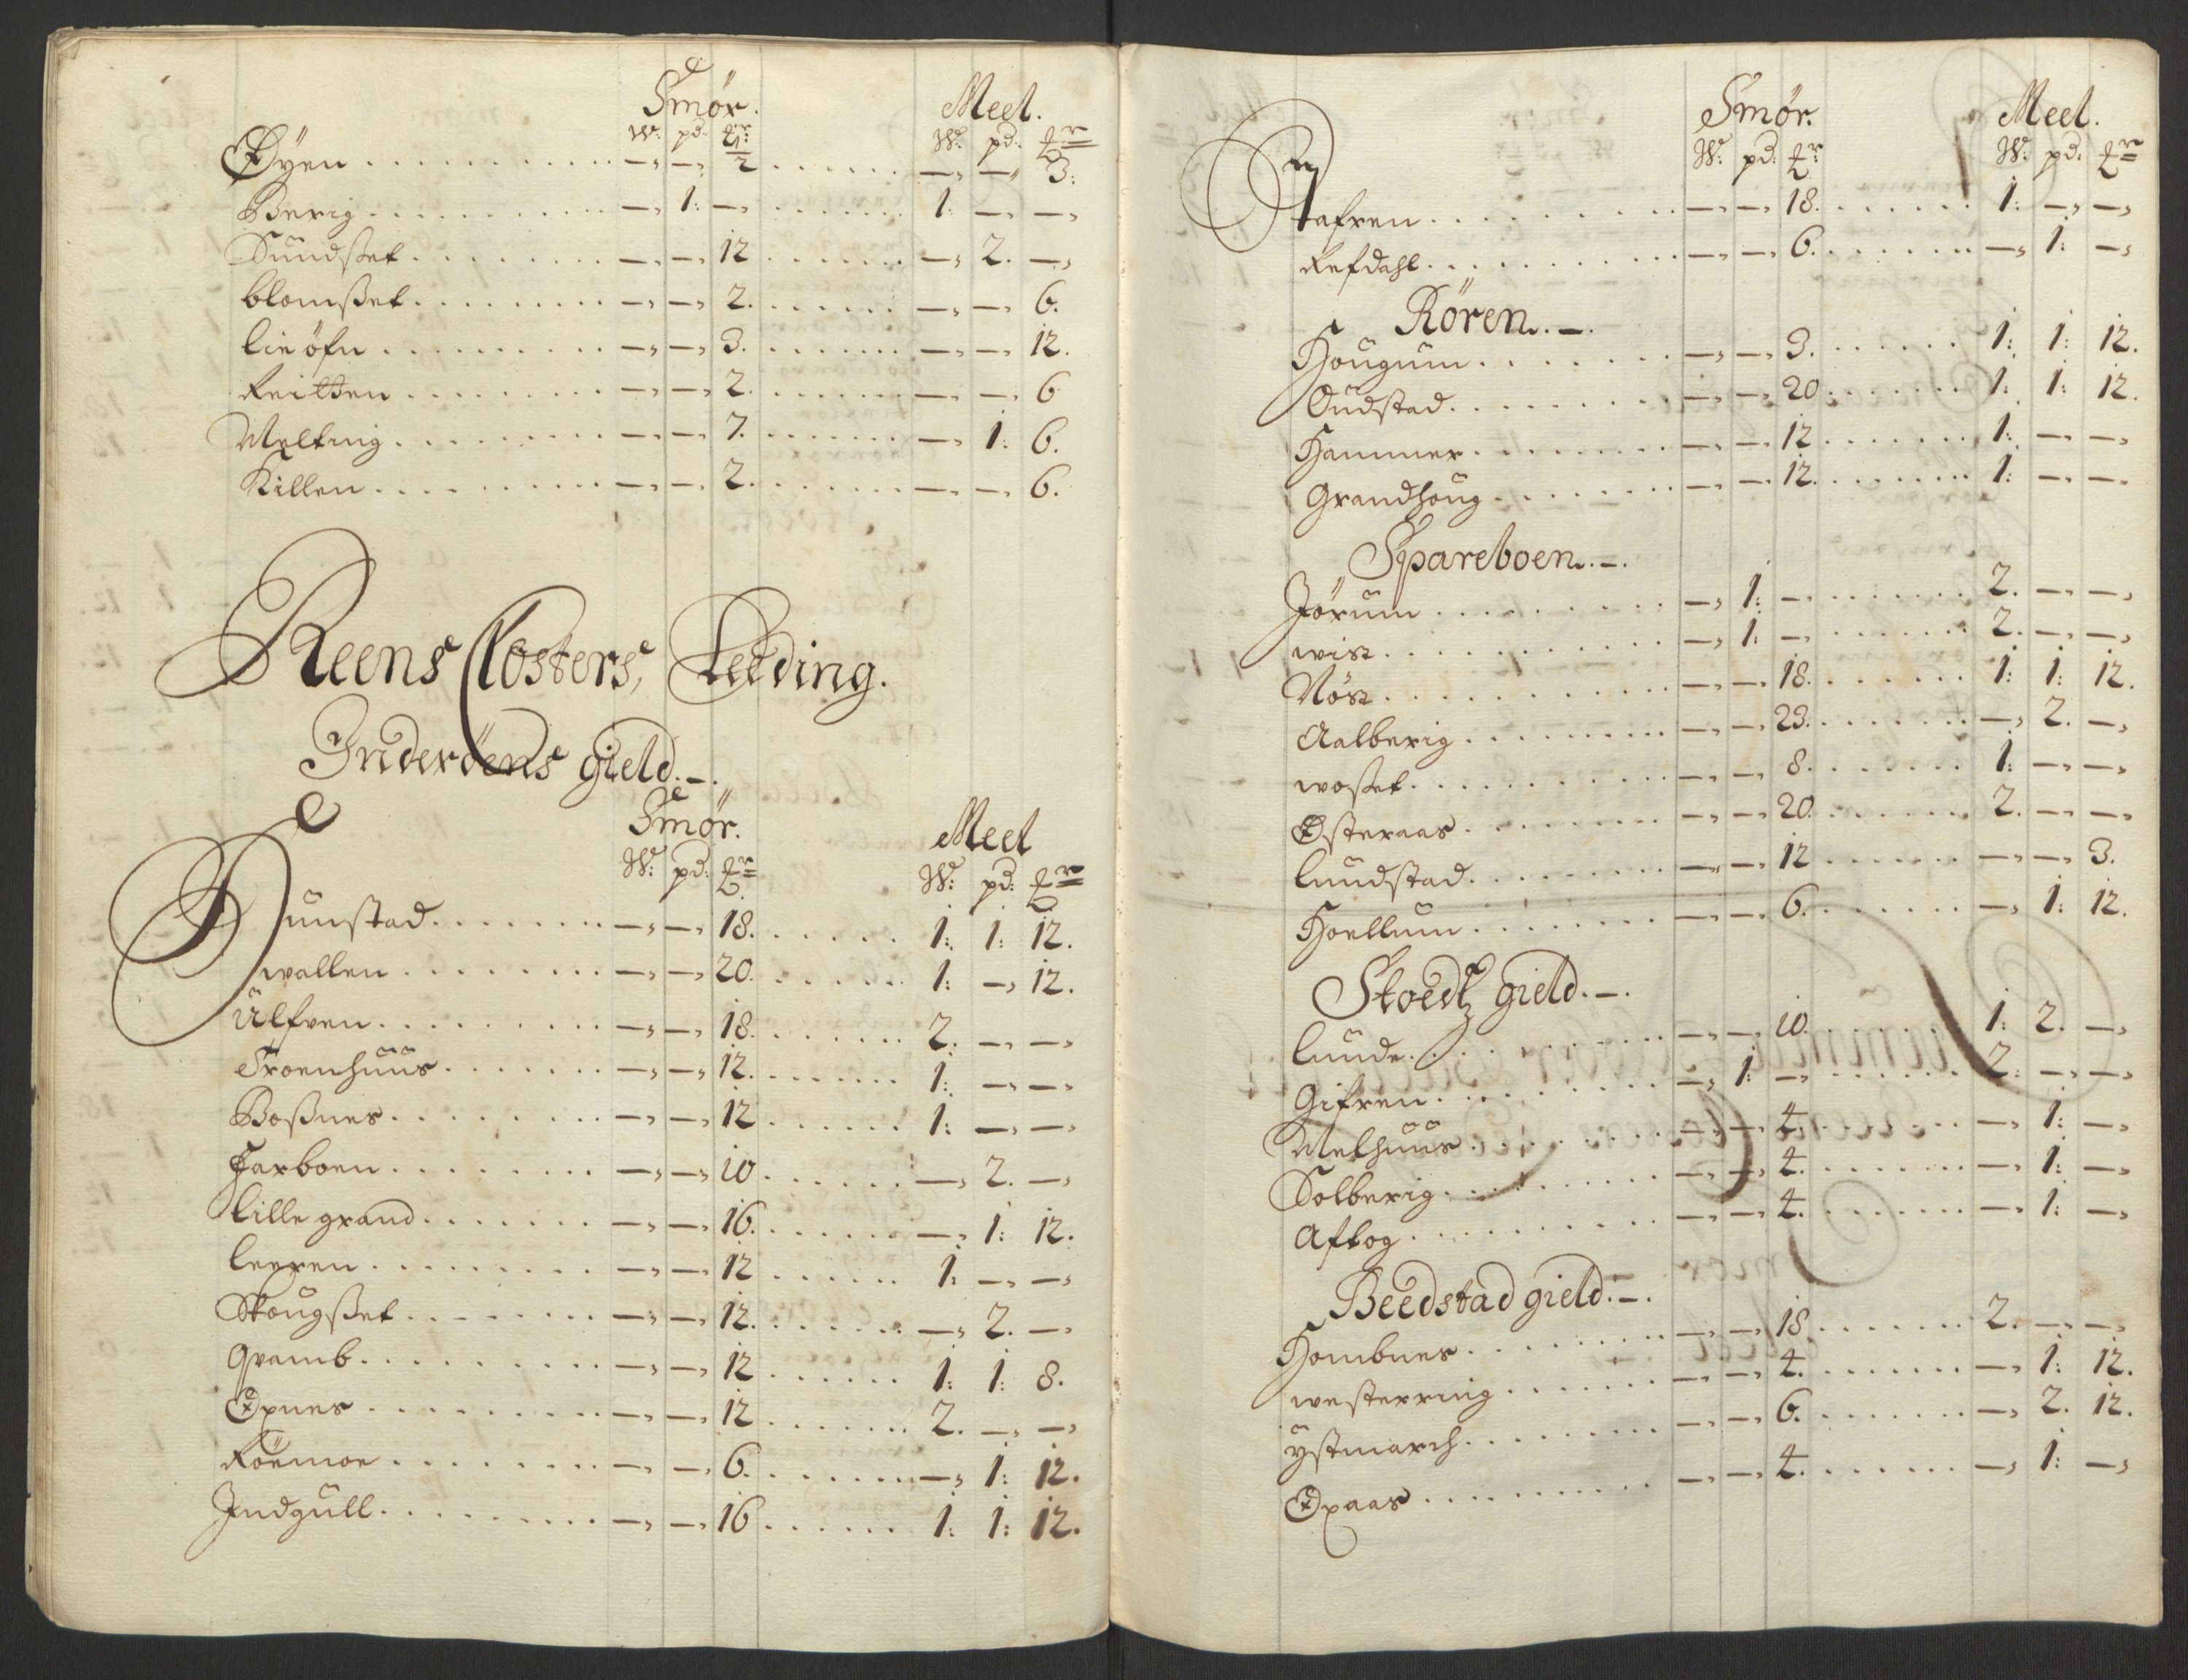 Smør. Meel.
W: pd: ℔r W: pd: ℔r
Øÿen . . . . . . . . . . —, —, ½ . . . . . . —, —, 3:
Berig . . . . . . . . . . —, 1: —, . . . . . . 1: —, —,
Sundsset . . . . . . . . —, —, 12 . . . . . . —, 2. —,
blomsset . . . . . . . . —, —, 2. . . . . . . —, —, 6.
lieöfn . . . . . . . . . —, —, 3. . . . . . . —, —, 12.
. . . . . . . . —, —, 2. . . . . . . —, —, 6
Melting . . . . . . . . —, —, 7. . . . . . . —, 1: 6.
Killen . . . . . . . . . —, —, 2. . . . . . . —, —, 6.
Reens Closters, Leeding.
Inderöens gield. —.
Smør. Meel
W: pd: ℔r W: pd: ℔r
Dunstad . . . . . . . —, —, 18. . . . . . 1: 1: 12.
wallen . . . . . . . . —, —, 20. . . . . . 1: —, 12.
Ulfven . . . . . . . . —, —, 18. . . . . . 2. —, —,
Troenhuus . . . . . . —, —, 12. . . . . . 1: —, —,
Bossnes . . . . . . . . —, —, 12 . . . . . . 1: —, —,
Farboen . . . . . . . . —, —, 10 . . . . . . —, 2. —,
lille grand . . . . . . . —, —, 16. . . . . . —, 1: 12.
leeren . . . . . . . . . —, —, 12 . . . . . . 1: —, —,
Skougsset . . . . . . . —, —, 12. . . . . . —, 2. —,
Qvamb . . . . . . . . —, —, 12 . . . . . . 1: 1: 8.
Øxnes . . . . . . . . . —, —, 12 . . . . . . 2. —, —,
Röemoe . . . . . . . . —, —, 6. . . . . . . —, 1: 12.
Indgull . . . . . . . . —, —, 16 . . . . . . 1: 1: 12.
Smør. Meel.
W: pd: ℔r W: pd: ℔r
. . . . . . . . . —, —, 18. . . . . . 1: —, —,
Refdahl . . . . . . . . . —, —, 6. . . . . . . —, 1: —,
Rören. —.
Hougum . . . . . . . . —, —, 3. . . . . . . 1: 1: 12.
Oudstad . . . . . . . . —, —, 20 . . . . . . 1: 1: 12.
Hammer . . . . . . . . —, —, 12 . . . . . . 1: —, —,
Grandhoug . . . . . . . —, —, 12. . . . . . 1: —, —,
Spareboen. —.
Jörum . . . . . . . . . —, 1: —, . . . . . . 2. —, —,
wist . . . . . . . . . . —, 1: —, . . . . . . 2. —, —,
Nöst . . . . . . . . . . —, —, 18. . . . . . 1: 1: 12.
Aalberig . . . . . . . . —, —, 23. . . . . . —, 2. —,
wosset . . . . . . . . . —, —, 8. . . . . . . 1: —, —,
Østeraas . . . . . . . . —, —, 20. . . . . . 2. —, —,
lundstad . . . . . . . . —, —, 12 . . . . . . —, —, 3.
Hoellum . . . . . . . . —, —, 6. . . . . . . —, 1: 12.
Stoedtz gield. —.
lunde . . . . . . . . . —, —, 10. . . . . . 1: 2. —,
Gifren . . . . . . . . . —, 1: —, . . . . . . 2: —, —,
Melhuus . . . . . . . . —, —, 4. . . . . . . —, 1: —,
Solberig . . . . . . . . —, —, 4. . . . . . . —, 1: —,
Aftog . . . . . . . . . —, —, 4. . . . . . . —, 1: —,
Beedstad gield. —.
Hombnes . . . . . . . . —, —, 18 . . . . . . 2. —, —,
westerring . . . . . . . —, —, 4. . . . . . . —, 1: 12.
ÿstmarch . . . . . . . . —, —, 6. . . . . . . —, 2. 12.
Øxaas . . . . . . . . . —, —, 4. . . . . . . —, 1: —,